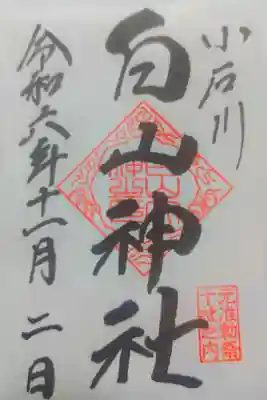 小石川
白山神社
令和六年十一月二日
元准勅祭
十社之内